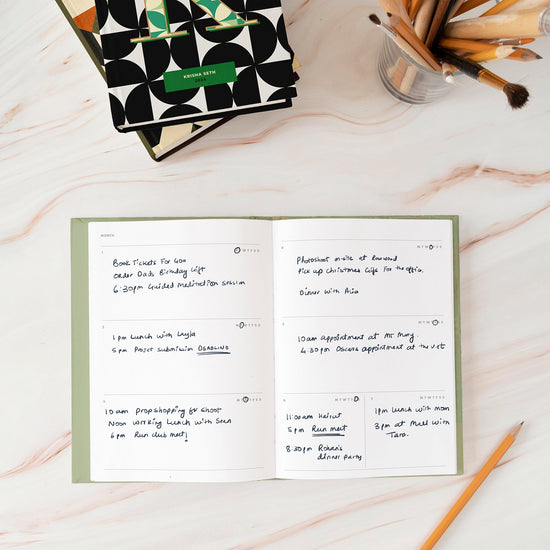 KRISHA SETH
MONTH
1
Book Tickets For Goa
Order Dads Birthday Gift
6:30pm Guided Meditation session
2
1pm Lunch with Layla
5pm Project submission DEADLINE
3
10am Propshopping for shoot
Noon Working Lunch with Sean
6pm Run club meet!
4
Photoshoot on-site at
Pick up Christmas Gifts For the office.
Dinner with Mia
5
10am appointment at
4:30pm Oscars appointment at the vet
6
11:00am Haircut
5pm Run meet
8:30pm Rohan's
dinner party
7
1pm Lunch with mom
3pm at Mall with
Tara.